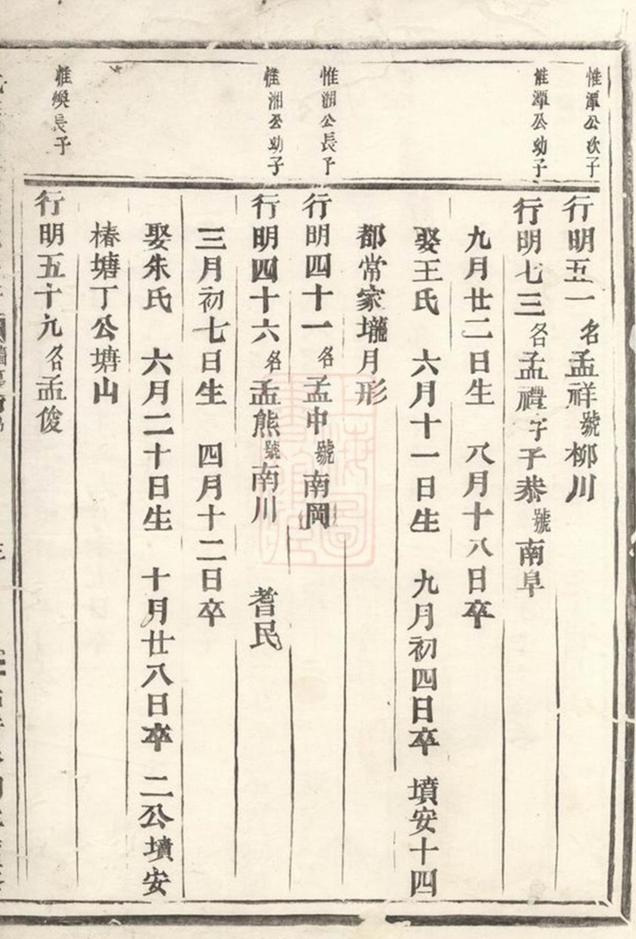 惟潭公次子
行明五一名孟祥號柳川
惟潭公幼子
行明七三名孟禮字子恭號南阜
九月廿二日生 八月十八日卒
娶王氏 六月十一日生 九月初四日卒 墳安十四
都常家壠月形
惟湖公長子
行明四十一名孟申號南岡
惟湘公幼子
行明四十六名孟熊號南川 耆民
三月初七日生 四月十二日卒
娶朱氏 六月二十日生 十月廿八日卒 二公墳安
椿塘丁公塘山
惟煥長子
行明五十九名孟俊